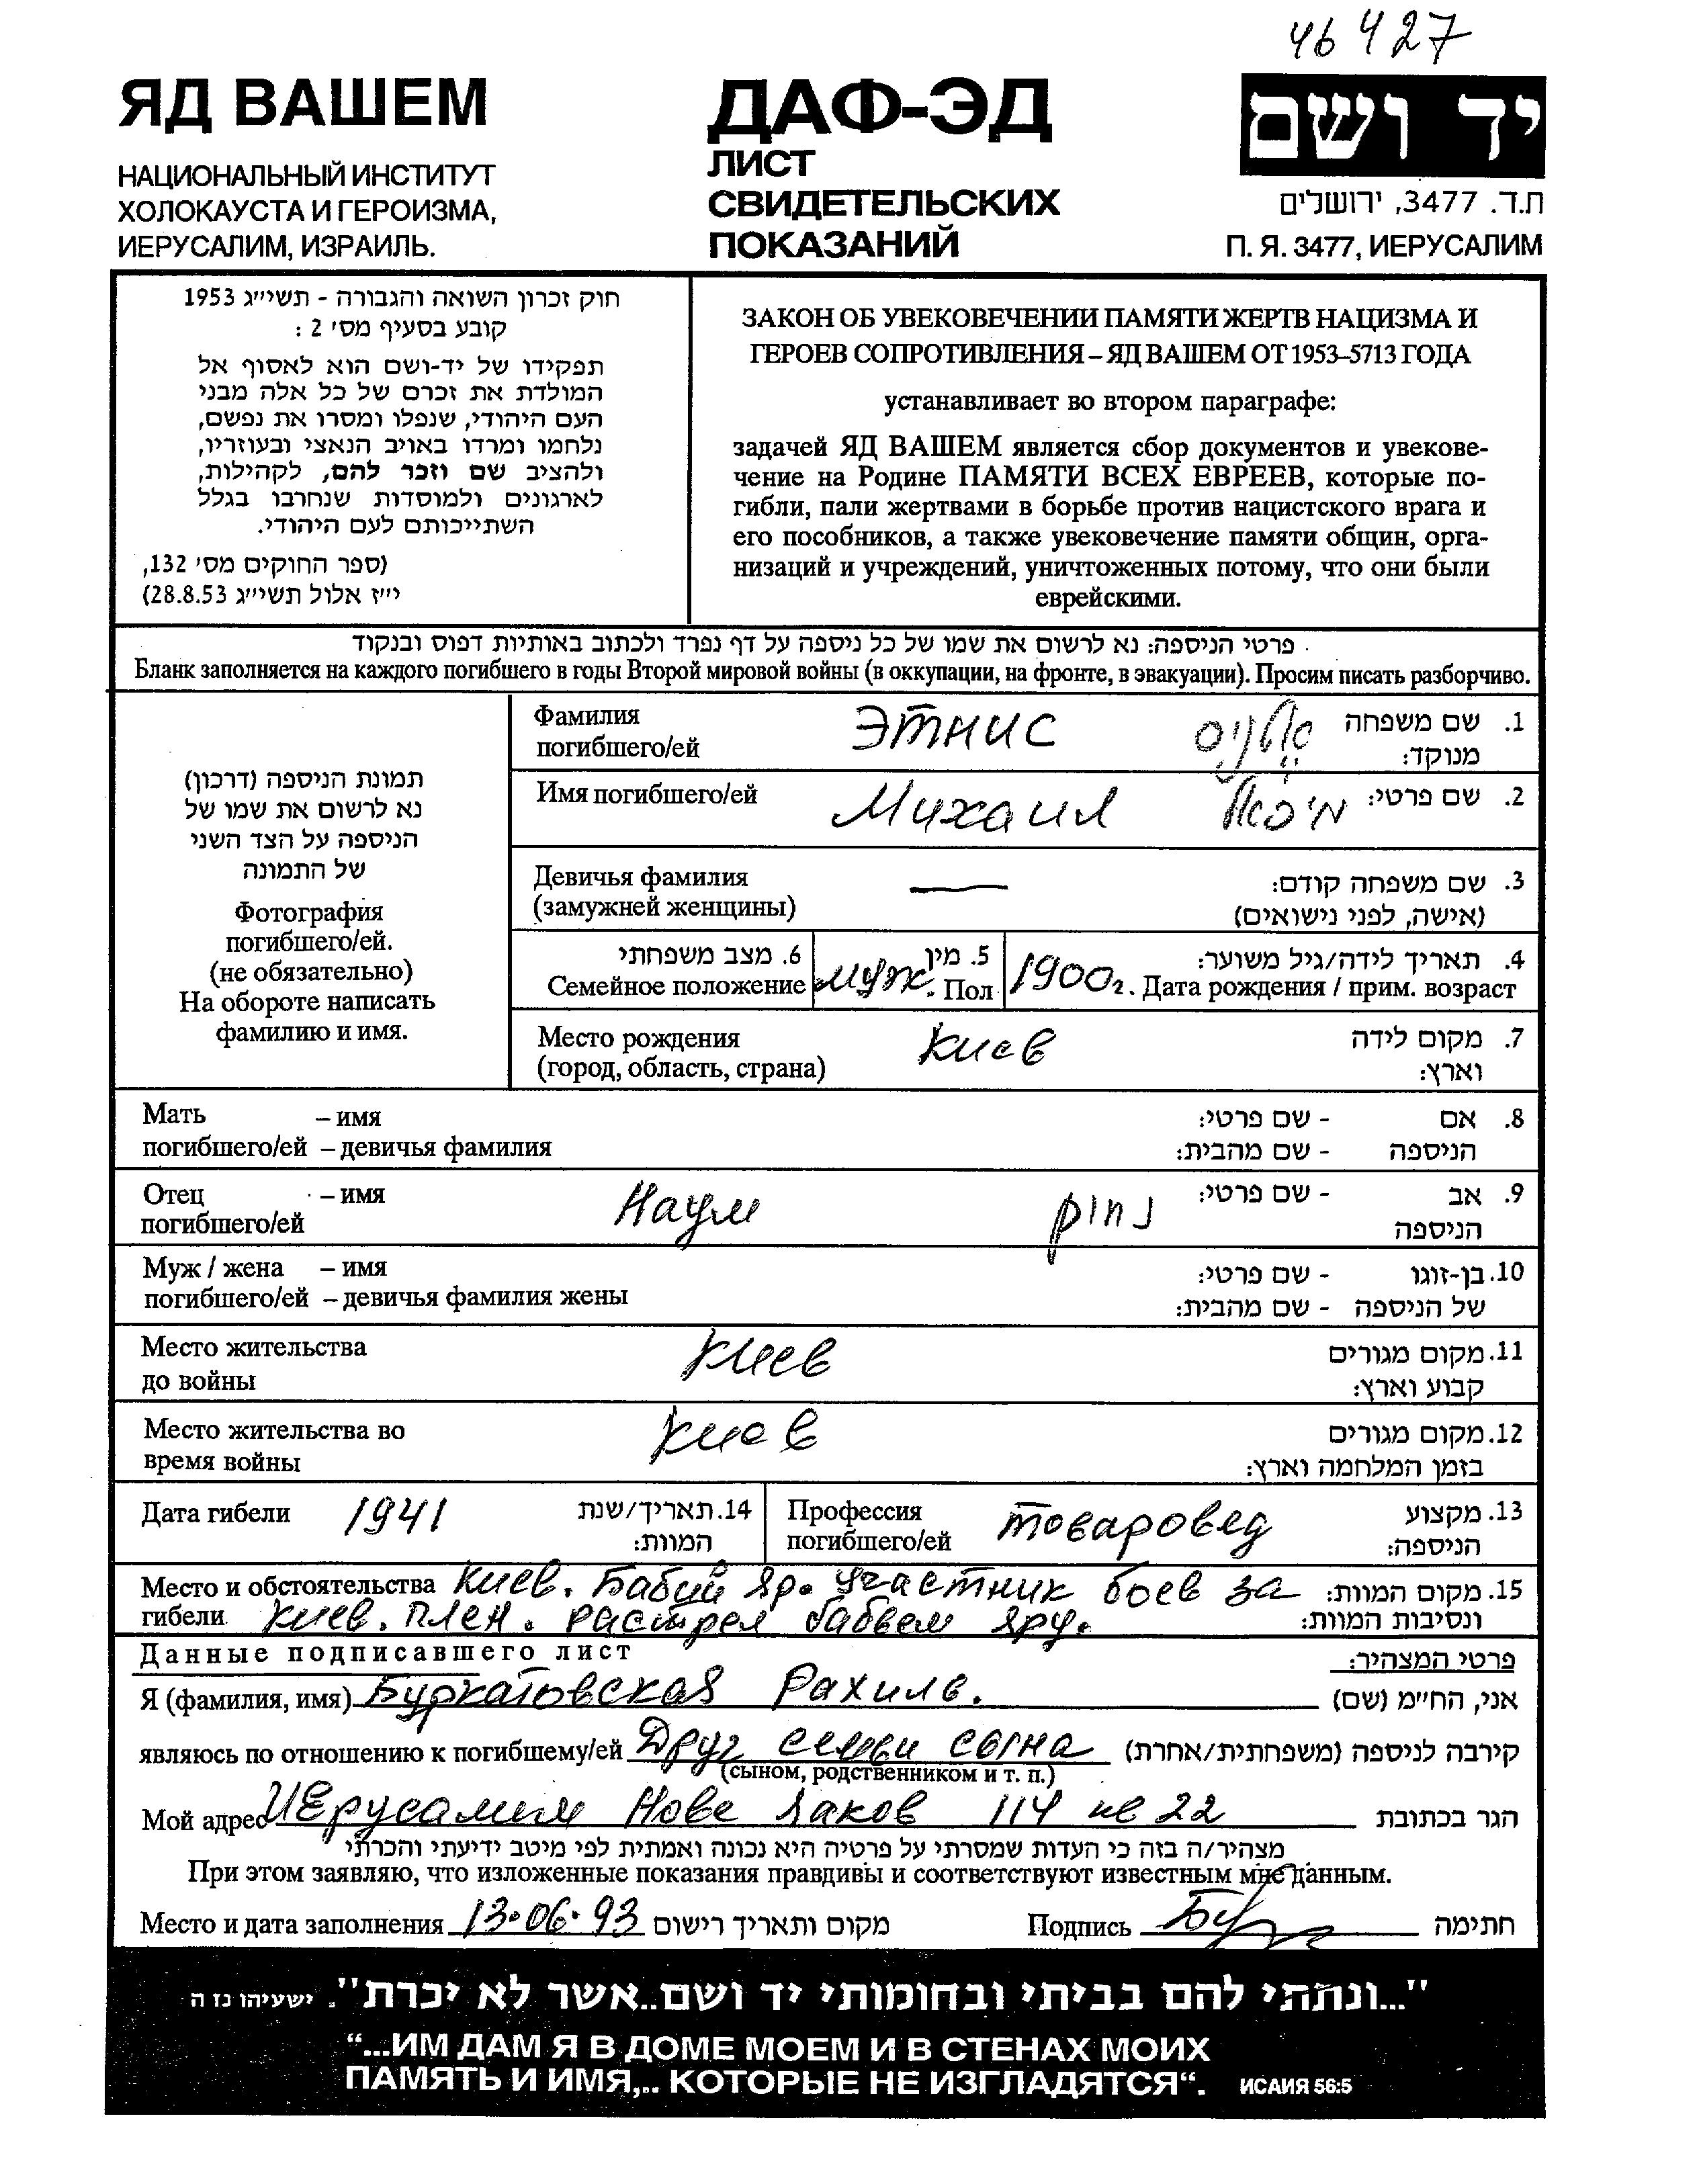 46427
ЯД ВАШЕМ
НАЦИОНАЛЬНЫЙ ИНСТИТУТ
ХОЛОКАУСТА И ГЕРОИЗМА,
ИЕРУСАЛИМ, ИЗРАИЛЬ.
ДАФ-ЭД
ЛИСТ
СВИДЕТЕЛЬСКИХ
ПОКАЗАНИЙ
יד ושם
ת.ד. 3477, ירושלים
П. Я. 3477, ИЕРУСАЛИМ
חוק זכרון השואה והגבורה - תשי״ג 1953
קובע בסעיף מס׳ 2 :
תפקידו של יד-ושם הוא לאסוף אל
המולדת את זכרם של כל אלה מבני
העם היהודי, שנפלו ומסרו את נפשם,
נלחמו ומרדו באויב הנאצי ובעוזריו,
ולהציב שם וזכר להם, לקהילות,
לארגונים ולמוסדות שנחרבו בגלל
השתייכותם לעם היהודי.
(ספר החוקים מס׳ 132,
י״ז אלול תשי״ג 28.8.53)
ЗАКОН ОБ УВЕКОВЕЧЕНИИ ПАМЯТИ ЖЕРТВ НАЦИЗМА И
ГЕРОЕВ СОПРОТИВЛЕНИЯ – ЯД ВАШЕМ ОТ 1953–5713 ГОДА
устанавливает во втором параграфе:
задачей ЯД ВАШЕМ является сбор документов и увекове-
чение на Родине ПАМЯТИ ВСЕХ ЕВРЕЕВ, которые по-
гибли, пали жертвами в борьбе против нацистского врага и
его пособников, а также увековечение памяти общин, орга-
низаций и учреждений, уничтоженных потому, что они были
еврейскими.
פרטי הניספה: נא לרשום את שמו של כל ניספה על דף נפרד ולכתוב באותיות דפוס ובנקוד
Бланк заполняется на каждого погибшего в годы Второй мировой войны (в оккупации, на фронте, в эвакуации). Просим писать разборчиво.
תמונת הניספה (דרכון)
נא לרשום את שמו של
הניספה על הצד השני
של התמונה
Фотография
погибшего/ей.
(не обязательно)
На обороте написать
фамилию и имя.
Фамилия ЭТНИС אטניס 1. שם משפחה
погибшего/ей מנוקד:
Имя погибшего/ей Михаил מיכאל 2. שם פרטי:
Девичья фамилия — 3. שם משפחה קודם:
(замужней женщины) (אישה, לפני נישואים)
6. מצב משפחתי 5. מין 4. תאריך לידה/גיל משוער:
Семейное положение муж. Пол 1900г. Дата рождения / прим. возраст
Место рождения Киев 7. מקום לידה
(город, область, страна) וארץ:
Мать – имя - שם פרטי: 8. אם
погибшего/ей – девичья фамилия - שם מהבית: הניספה
Отец – имя Наум נחום - שם פרטי: 9. אב
погибшего/ей הניספה
Муж / жена – имя - שם פרטי: 10. בן-זוגו
погибшего/ей – девичья фамилия жены - שם מהבית: של הניספה
Место жительства Киев 11. מקום מגורים
до войны קבוע וארץ:
Место жительства во Киев 12. מקום מגורים
время войны בזמן המלחמה וארץ:
Дата гибели 1941 14. תאריך/שנת
המוות:
Профессия товаровед 13. מקצוע
погибшего/ей הניספה:
Место и обстоятельства Киев. Бабий Яр. Участник боев за 15. מקום המוות:
гибели Киев. Плен. Растрел бабьем Яру. ונסיבות המוות:
Данные подписавшего лист פרטי המצהיר:
Я (фамилия, имя) Буркатовская Рахиль. אני, הח״מ (שם)
являюсь по отношению к погибшему/ей Друг семьи сына קירבה לניספה (משפחתית/אחרת)
(сыном, родственником и т. п.)
Мой адрес Иерусалим Нове Яаков 114 кв 22 הגר בכתובת
מצהיר/ה בזה כי העדות שמסרתי על פרטיה היא נכונה ואמתית לפי מיטב ידיעתי והכרתי
При этом заявляю, что изложенные показания правдивы и соответствуют известным мне данным.
Место и дата заполнения 13.06.93 מקום ותאריך רישום Подпись חתימה
"...ונתתי להם בביתי ובחומותי יד ושם..אשר לא יכרת". ישעיהו נז ה
“...ИМ ДАМ Я В ДОМЕ МОЕМ И В СТЕНАХ МОИХ
ПАМЯТЬ И ИМЯ,.. КОТОРЫЕ НЕ ИЗГЛАДЯТСЯ“. ИСАИЯ 56:5